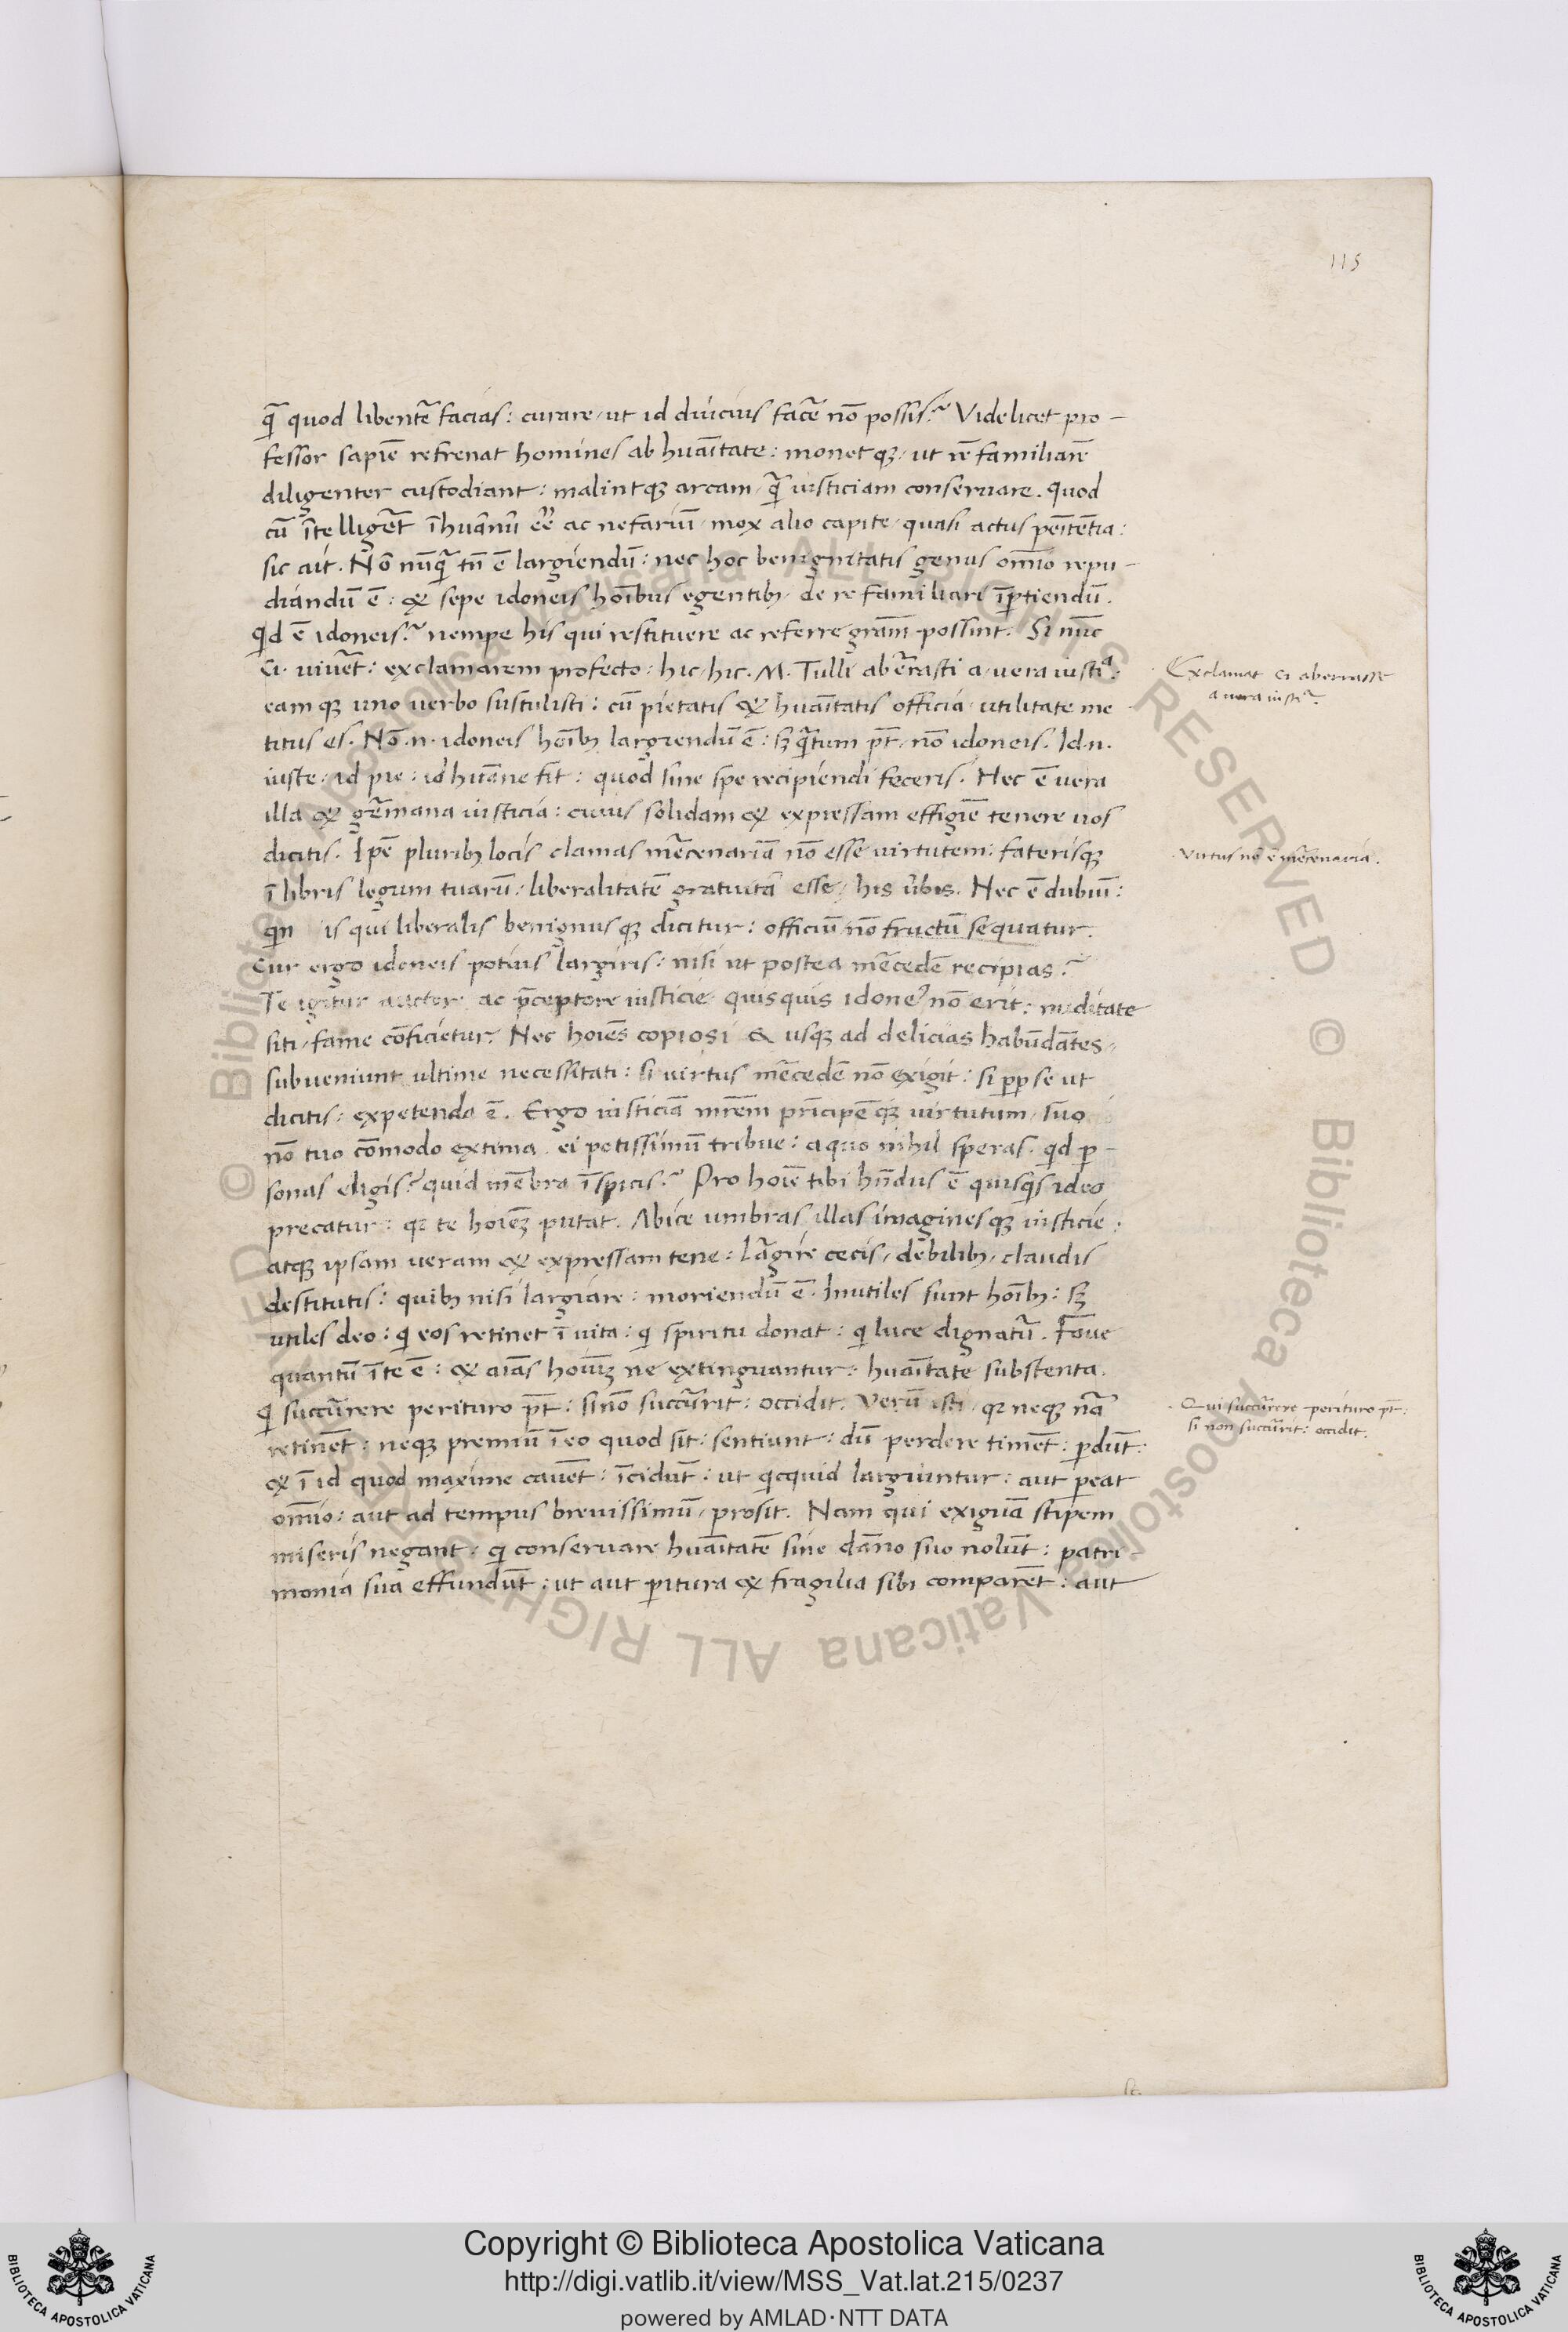 115
q̃ quod libent̃ facias: curare, ut id diucius facẽ nõ possis? Videlicet pro-
fessor sapiẽ refrenat homines ab huãitate: monetqꝫ, ut rẽ familiarẽ
diligenter custodiant: malintqꝫ arcam, q̃ iusticiam conseruare. Quod
cũ ĩtelligẽt ĩhuãnũ eẽ ac nefariũ, mox alio capite, quasi actus peĩtẽtia:
sic ait. Nõ nũq̃ tñ ẽ largiendũ: nec hoc benignitatis genus om̃io repu-
diandũ ẽ: & sepe idoneis hoĩbus egentibꝫ, de re familiari ĩp̱tiendũ.
Qd ẽ idoneis? nempe his qui restituere ac referre gram̃ possint. Si nũc
Ci. viuẽt: exclamarem profecto: hic, hic. M. Tulli aberrasti a, vera iustiᵃ:
eamqꝫ uno uerbo sustulisti: cũ pietatis & huãitatis officia, utilitate me
titus es. Nõ .n. idoneis hoĩbꝫ largiendũ ẽ: sꝫ q̃tum pt̃, nõ idoneis. Id .n.
iuste, id pie, id huãne fit: quod sine spe recipiendi feceris. Hec ẽ uera
illa & gẽmana iusticia: cuius solidam & expressam effigiẽ tenere uos
dicitis. Ip̃e pluribꝫ locis clamas mẽcenariã nõ esse virtutem: faterisqꝫ
ĩ libris legum tuarũ, liberalitatẽ gratuitã esse, his ũbis. Nec ẽ dubiũ:
qin is qui liberalis benignusqꝫ dicitur: officiũ, nõ fructũ sequatur.
Cur ergo idoneis potius largiris: nisi ut postea mẽcedẽ recipias?
Te igitur auctore ac p̃ceptore iusticie, quisquis idoneꝰ nõ erit: nuditate
siti, fame cõficietur. Nec hoiẽs copiosi & usqꝫ ad delicias habũdãtes,
subueniunt ultime necessitati: si virtus mẽcedẽ nõ exigit: si ꝓp̱ se ut
dicitis: expetenda ẽ. Ergo iusticiã mrẽm prĩcipẽqꝫ virtutum, suo
nõ tuo cõmodo extima. ei potissimũ tribue: a quo nihil speras. qd p̱-
sonas eligis? quid mẽbra ĩspicis? Pro hoiẽ tibi hñdus ẽ quisqs ideo
precatur: qꝛ te hoiẽꝫ putat. Abice umbras illas imaginesqꝫ iusticie:
atqꝫ ipsam ueram & expressam tene: Lãgire cecis, debilibꝫ, claudis
destitutis: quibꝫ nisi largiare: moriendũ ẽ. Inutiles sunt hoĩbꝫ: sꝫ
utiles deo: qi eos retinet ĩ uita: qi spiritu donat: qi luce dignatũ. Foue
quantũ ĩ te ẽ: & aĩas hoiũꝫ ne extinguantur: huãitate substenta.
Qi succũrere perituro pt̃: si nõ succũrit: occidit. Verũ isti, qꝛ neqꝫ nr̃ã
retinẽt: neqꝫ premiũ ĩ eo quod sit: sentiunt: dũ perdere timẽt: p̱dũt:
& ĩ id quod maxime cauẽt: ĩcidũt: ut qicquid largiuntur: aut p̱eat
om̃io: aut ad tempus breuissimũ, prosit. Nam qui exiguã stipem
miseris negant: qi conseruare huãitatẽ sine dãno suo nolũt: patri-
monia sua effundũt: ut aut p̱itura & fragilia sibi comparẽt: aut
Exclamat Ci aberrasse
a uera iustiᵃ.
Virtus nõ ẽ mẽcenaria.
Qui succũrere perituro pt̃:
si non succũrit: occidit.
Copyright © Biblioteca Apostolica Vaticana
http://digi.vatlib.it/view/MSS_Vat.lat.215/0237
powered by AMLAD·NTT DATA
BIBLIOTECA APOSTOLICA VATICANA
BIBLIOTECA APOSTOLICA VATICANA
© Biblioteca Apostolica Vaticana ALL RIGHTS RESERVED © Biblioteca Apostolica Vaticana ALL RIGHTS RESERVED